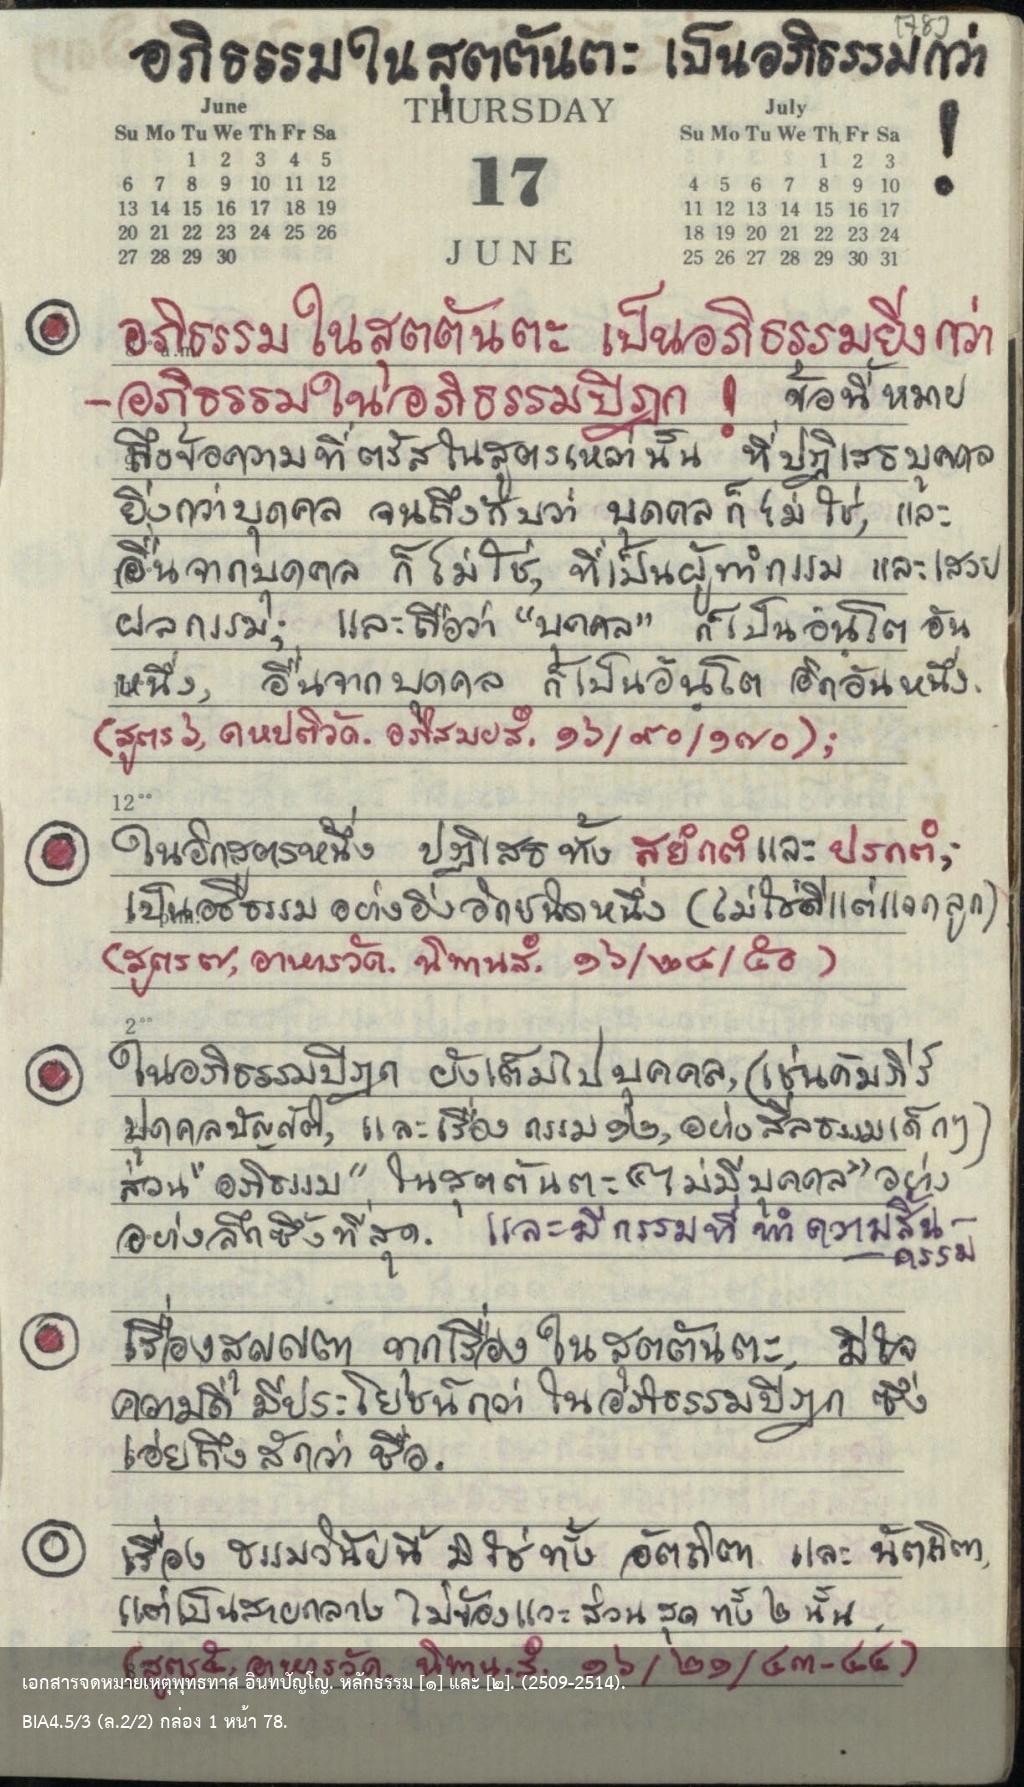 [78]
อภิธรรมในสุตตันตะ เป็นอภิธรรมกว่า
!
June
Su Mo Tu We Th Fr Sa
1 2 3 4 5
6 7 8 9 10 11 12
13 14 15 16 17 18 19
20 21 22 23 24 25 26
27 28 29 30
THURSDAY
17
JUNE
July
Su Mo Tu We Th Fr Sa
1 2 3
4 5 6 7 8 9 10
11 12 13 14 15 16 17
18 19 20 21 22 23 24
25 26 27 28 29 30 31
อภิธรรมในสุตตันตะ เป็นอภิธรรมยิ่งกว่า
–อภิธรรมในอภิธรรมปิฎก ! ข้อนี้หมาย
ถึงข้อความที่ตรัสในสูตรเหล่านั้น ที่ปฏิเสธบุคคล
ยิ่งกว่าบุคคล จนถึงกับว่า บุคคลก็ไม่ใช่, และ
อื่นจากบุคคล ก็ไม่ใช่, ที่เป็นผู้ทำกรรม และเสวย
ผลกรรม; และถือว่า "บุคคล" ก็เป็นอันโต อัน
หนึ่ง, อื่นจากบุคคล ก็เป็นอันโต อีกอันหนึ่ง.
(สูตร ๖, คหปติวัค. อภิสมยสํ. ๑๖/๙๐/๑๗๐);
12°°
ในอีกสูตรหนึ่ง ปฏิเสธทั้ง สยํกตํและ ปรกตํ;
เป็นอธิธรรม อย่างยิ่งอีกชนิดหนึ่ง (ไม่ใช่ดีแต่แจกลูก)
(สูตร ๗, อาหารวัค. นิทานสํ. ๑๖/๒๔/๕๐)
2°°
ในอภิธรรมปิฎก ยังเต็มไปบุคคล, (เช่นคัมภีร์
ปุคคลบัญญัติ, และเรื่อง กรรม ๑๒, อย่างศีลธรรมเด็กๆ)
ส่วน "อภิธรรม" ในสุตตันตะ "ไม่มีบุคคล" อย่าง
อย่างลึกซึ้งที่สุด. และมีกรรมที่ทำความสิ้น–
–กรรม
เรื่องสุญญตา จากเรื่องในสุตตันตะ, มีใจ
ความดี มีประโยชน์กว่า ในอภิธรรมปิฎก ซึ่ง
เอ่ยถึงสักว่า ชื่อ.
เรื่อง ธรรมวินัยนี้ มิใช่ทั้ง อัตถิตา และ นัตถิตา,
แต่เป็นสายกลาง ไม่ข้องแวะส่วนสุดทั้ง ๒ นั้น
(สูตร ๕, อาหารวัค. นิทาน.สํ. ๑๖/๒๑/๔๓-๔๔)
เอกสารจดหมายเหตุพุทธทาส อินทปัญโญ. หลักธรรม [๑] และ [๒]. (2509-2514).
BIA4.5/3 (ล.2/2) กล่อง 1 หน้า 78.